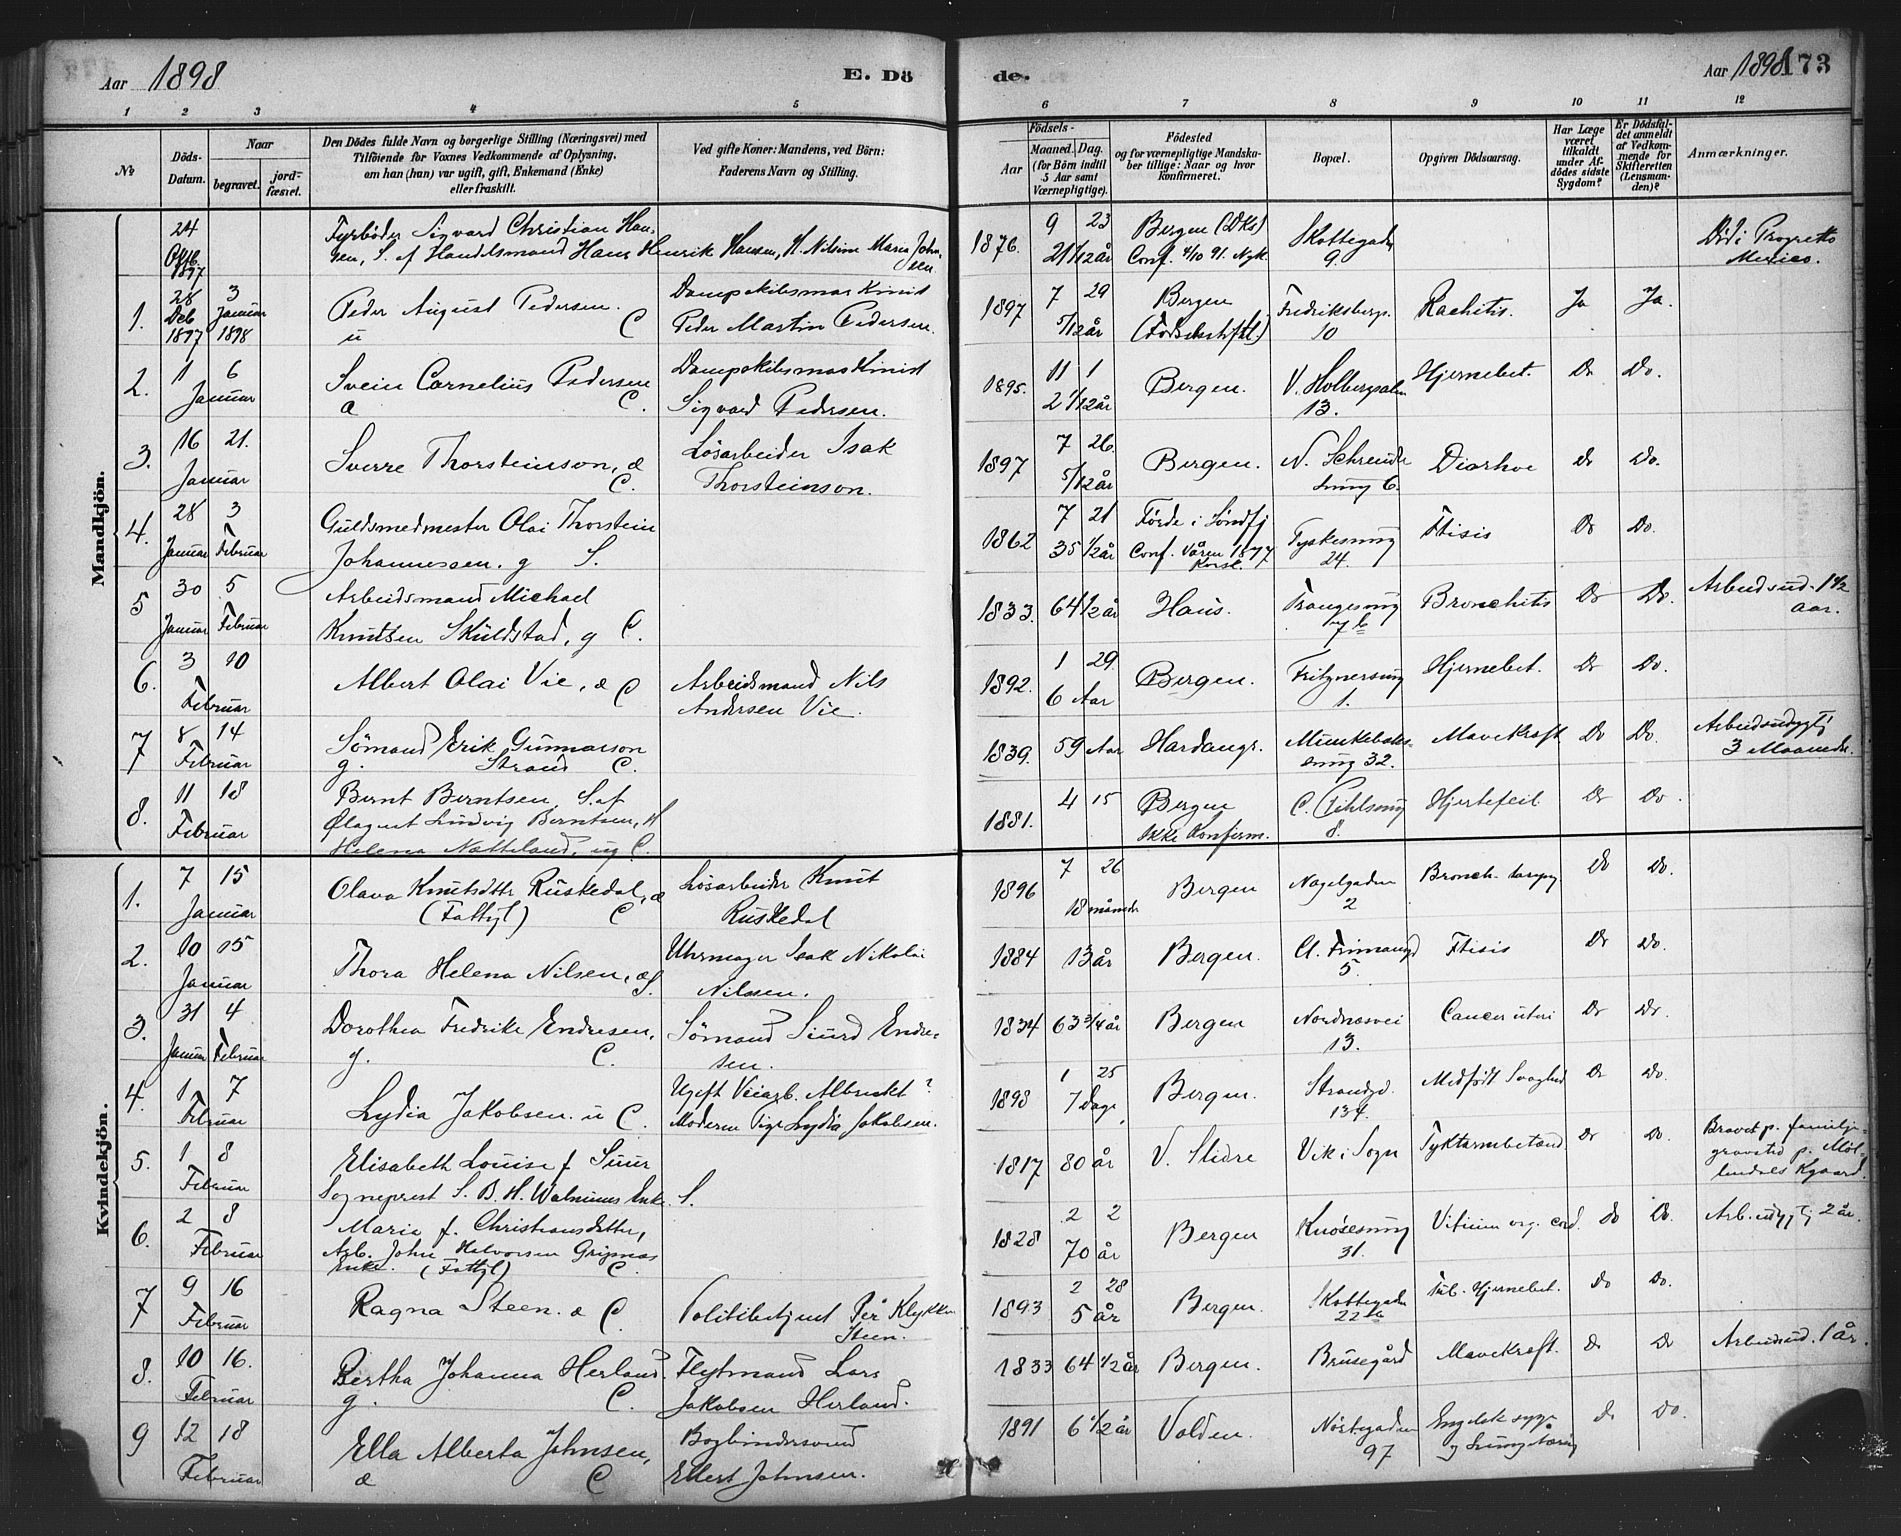 Aar 1898 E. Dö
de. Aar 1898 173
1 2 3 4 5
6 7 8 9 10 11 12
№
Döds-
Datum.
Naar
begravet.
jord-
fæstet.
Den Dödes fulde Navn og borgerlige Stilling (Næringsvei) med
Tilföiende for Voxnes Vedkommende af Oplysning,
om han (hun) var ugift, gift, Enkemand (Enke)
eller fraskilt.
Ved gifte Koner: Mandens, ved Börn:
Faderens Navn og Stilling.
Födsels-
Aar
Maaned. Dag.
(for Börn indtil
5 Aar samt
Værnepligtige).
Födested
og for værnepligtige Mandska-
ber tillige: Naar og hvor
Konfirmeret.
Bopæl.
Opgiven Dödsaarsag.
Har Læge
været
tilkaldt
under Af-
dödes sidste
Sygdom?
Er Dödsfal-
det anmeldt
af Vedkom-
mende for
Skifteretten
(Lensman-
den)?
Anmærkninger.
Mandkjön.
24
Oktb.
1897
Fyrböder Sigvard Christian Han-
sen, S. af Handelsmand Hans Henrik Hansen, H. Nilsine Maria John-
sen
1876. 9 23
21 1/12 år
Bergen (DKs)
Conf. 4/10 91. Nyk.
Skottegaden
9.
Död i Progreso
Mexico.
1. 28 3
Deb Januar
1897 1898
Peder August Pedersen.
u C
Dampskibsmaskinist
Peder Martin Pedersen.
1897 7 29
5/12 år
Bergen
(Födselsstiftel.)
Fredriksbergs.
10
Rachitis. Ja Ja.
2. 11 6
Januar
Svein Cornelius Pedersen
a C.
Dampskibsmaskinist
Sigvard Pedersen.
1895. 11 1
2 1/12 år
Bergen.
V. Holbergsalm
13.
Hjernebet. Do Do.
3. 16 21.
Januar
Sverre Thorsteinson, æ
C.
Lösarbeider Isak
Thorsteinson.
1897 7 26
5/12 år
Bergen.
N. Schreuder
smug 6.
Diarhoe Do Do.
4. 28 3
Januar Februar
Guldsmedmester Olai Thorstein
Johannessen. g S.
1862 7 21
35 1/2 år
Förde i Söndfj
Conf. Våren 1877
Korsk.
Tyskesmug
24.
Ftisis Do Do.
5 30 5
Januar Februar
Arbeidsmand Michael
Knutsen Skuldstad, g C.
1833. 64 1/2 år
Haus.
Trangesmug
7 b
Bronchitis Do Do.
Arbeidsud. 1 1/2
aar.
6. 3 10
Februar
Albert Olai Vie, æ C
Arbeidsmand Nils
Andersen Vie.
1892. 1 29
6 Aar
Bergen.
Fritznersmug
1.
Hjernebet. Do Do.
7 8 14
Februar
Sömand Erik Gunnarson
g. Strand C.
1839. 59 Aar
Hardanger.
Munkebæks-
smug 32.
Mavekræft Do Do.
Arbeidsudygtig
3 Maaneder.
8. 11 18
Februar
Bernt Berntsen, S. af
Ølagust Ludvig Berntsen, H
Helena Nætteland, ug C.
1881. 4 15
Bergen
Ikke Konfirm.
C. Pihlsmug
8.
Hjertefeil Do Do.
Kvindekjön.
1. 7 15
Januar
Olava Knutsdtr Ruskedal, æ
(Fattyl) C
Lösarbeider Knut
Ruskedal
1896 7 26
18 måneder
Bergen
Nagelgaden
2
Bronch. Do Do.
2. 10 15
Januar
Thora Helena Nilsen, æ S.
Uhrmager Isak Nikolai
Nilssen.
1884 13 år
Bergen.
Cl. Frimansgd
5.
Ftisis Do Do.
3. 31 4
Januar Februar
Dorothea Fredrike Endresen,
g. C.
Sömand Siurd Endre-
sen.
1834 63 3/4 år
Bergen
Nordnæsvei
13.
Cancer uteri Do Do.
4. 1 7
Februar
Lydia Jakobsen. u C.
Ugift Veiarb. Albrecht ?
Moderen Pige Lydia Jakobsen.
1898 1 25
7 Dage
Bergen.
Strandgd.
134.
Medfødt Svaghed Do Do.
5. 1 8
Februar
Elisabeth Louise f. Suur
Sogneprest S. B. H. Walnums Enke. S.
1817 80 år
V. Slidre
Vik i Sogn
Tyktarmbetænd Do Do.
Gravet p. familje-
gravsted p. Möl-
lendals Kgaard.
6. 2 8
Februar
Marie f. Christiansdatter,
Arb. John Halvorsen Gripnæs
Enke. (Fattyl) C.
1828 2 2
70 år
Bergen
Knösesmug
31.
Vitium org. cord. Do Do.
Arb.udygtig 2 år.
7 9 16
Februar
Ragna Steen. æ C.
Politibetjent Per Klykken
Steen.
1893 2 28
5 år
Bergen.
Skottegaden
22 b
Tub. Hjernebet. Do Do.
8. 10 16.
Februar
Bertha Johanna Herland
g. C.
Flytmand Lars
Jakobsen Herland.
1833 64 1/2 år
Bergen.
Brusegård
Mavekræft. Do Do
Arbeidsud. 1 år.
9 12 18
Februar
Ella Alberta Johnsen,
æ C
Bogbindersvend
Ellert Johnsen.
1891 6 1/2 år
Volden.
Nöstegaden
97
Engelsk syge
og Lungetæring Do Do.